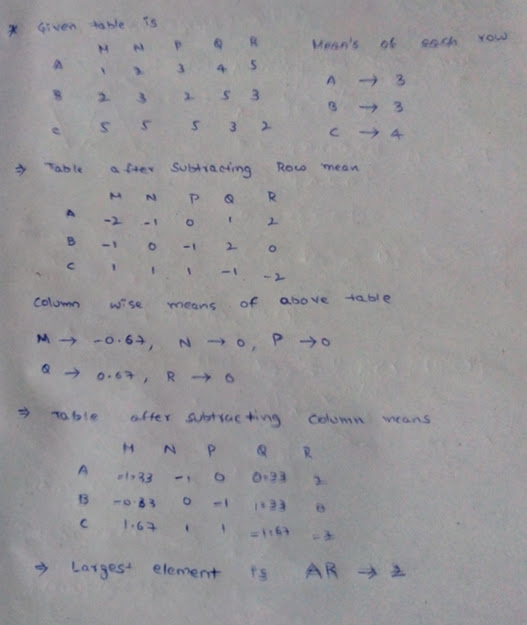 * Given table is
M N P Q R Mean's of each row
A 1 2 3 4 5 A → 3
B 2 3 2 5 3 B → 3
C 5 5 5 3 2 C → 4
⇒ Table after Subtracting Row mean
M N P Q R
A -2 -1 0 1 2
B -1 0 -1 2 0
C 1 1 1 -1 -2
Column wise means of above table
M → -0.67, N → 0, P → 0
Q → 0.67, R → 0
⇒ Table after subtracting Column means
M N P Q R
A -1.33 -1 0 0.33 2
B -0.33 0 -1 1.33 0
C 1.67 1 1 -1.67 -2
⇒ Largest element is AR → 2